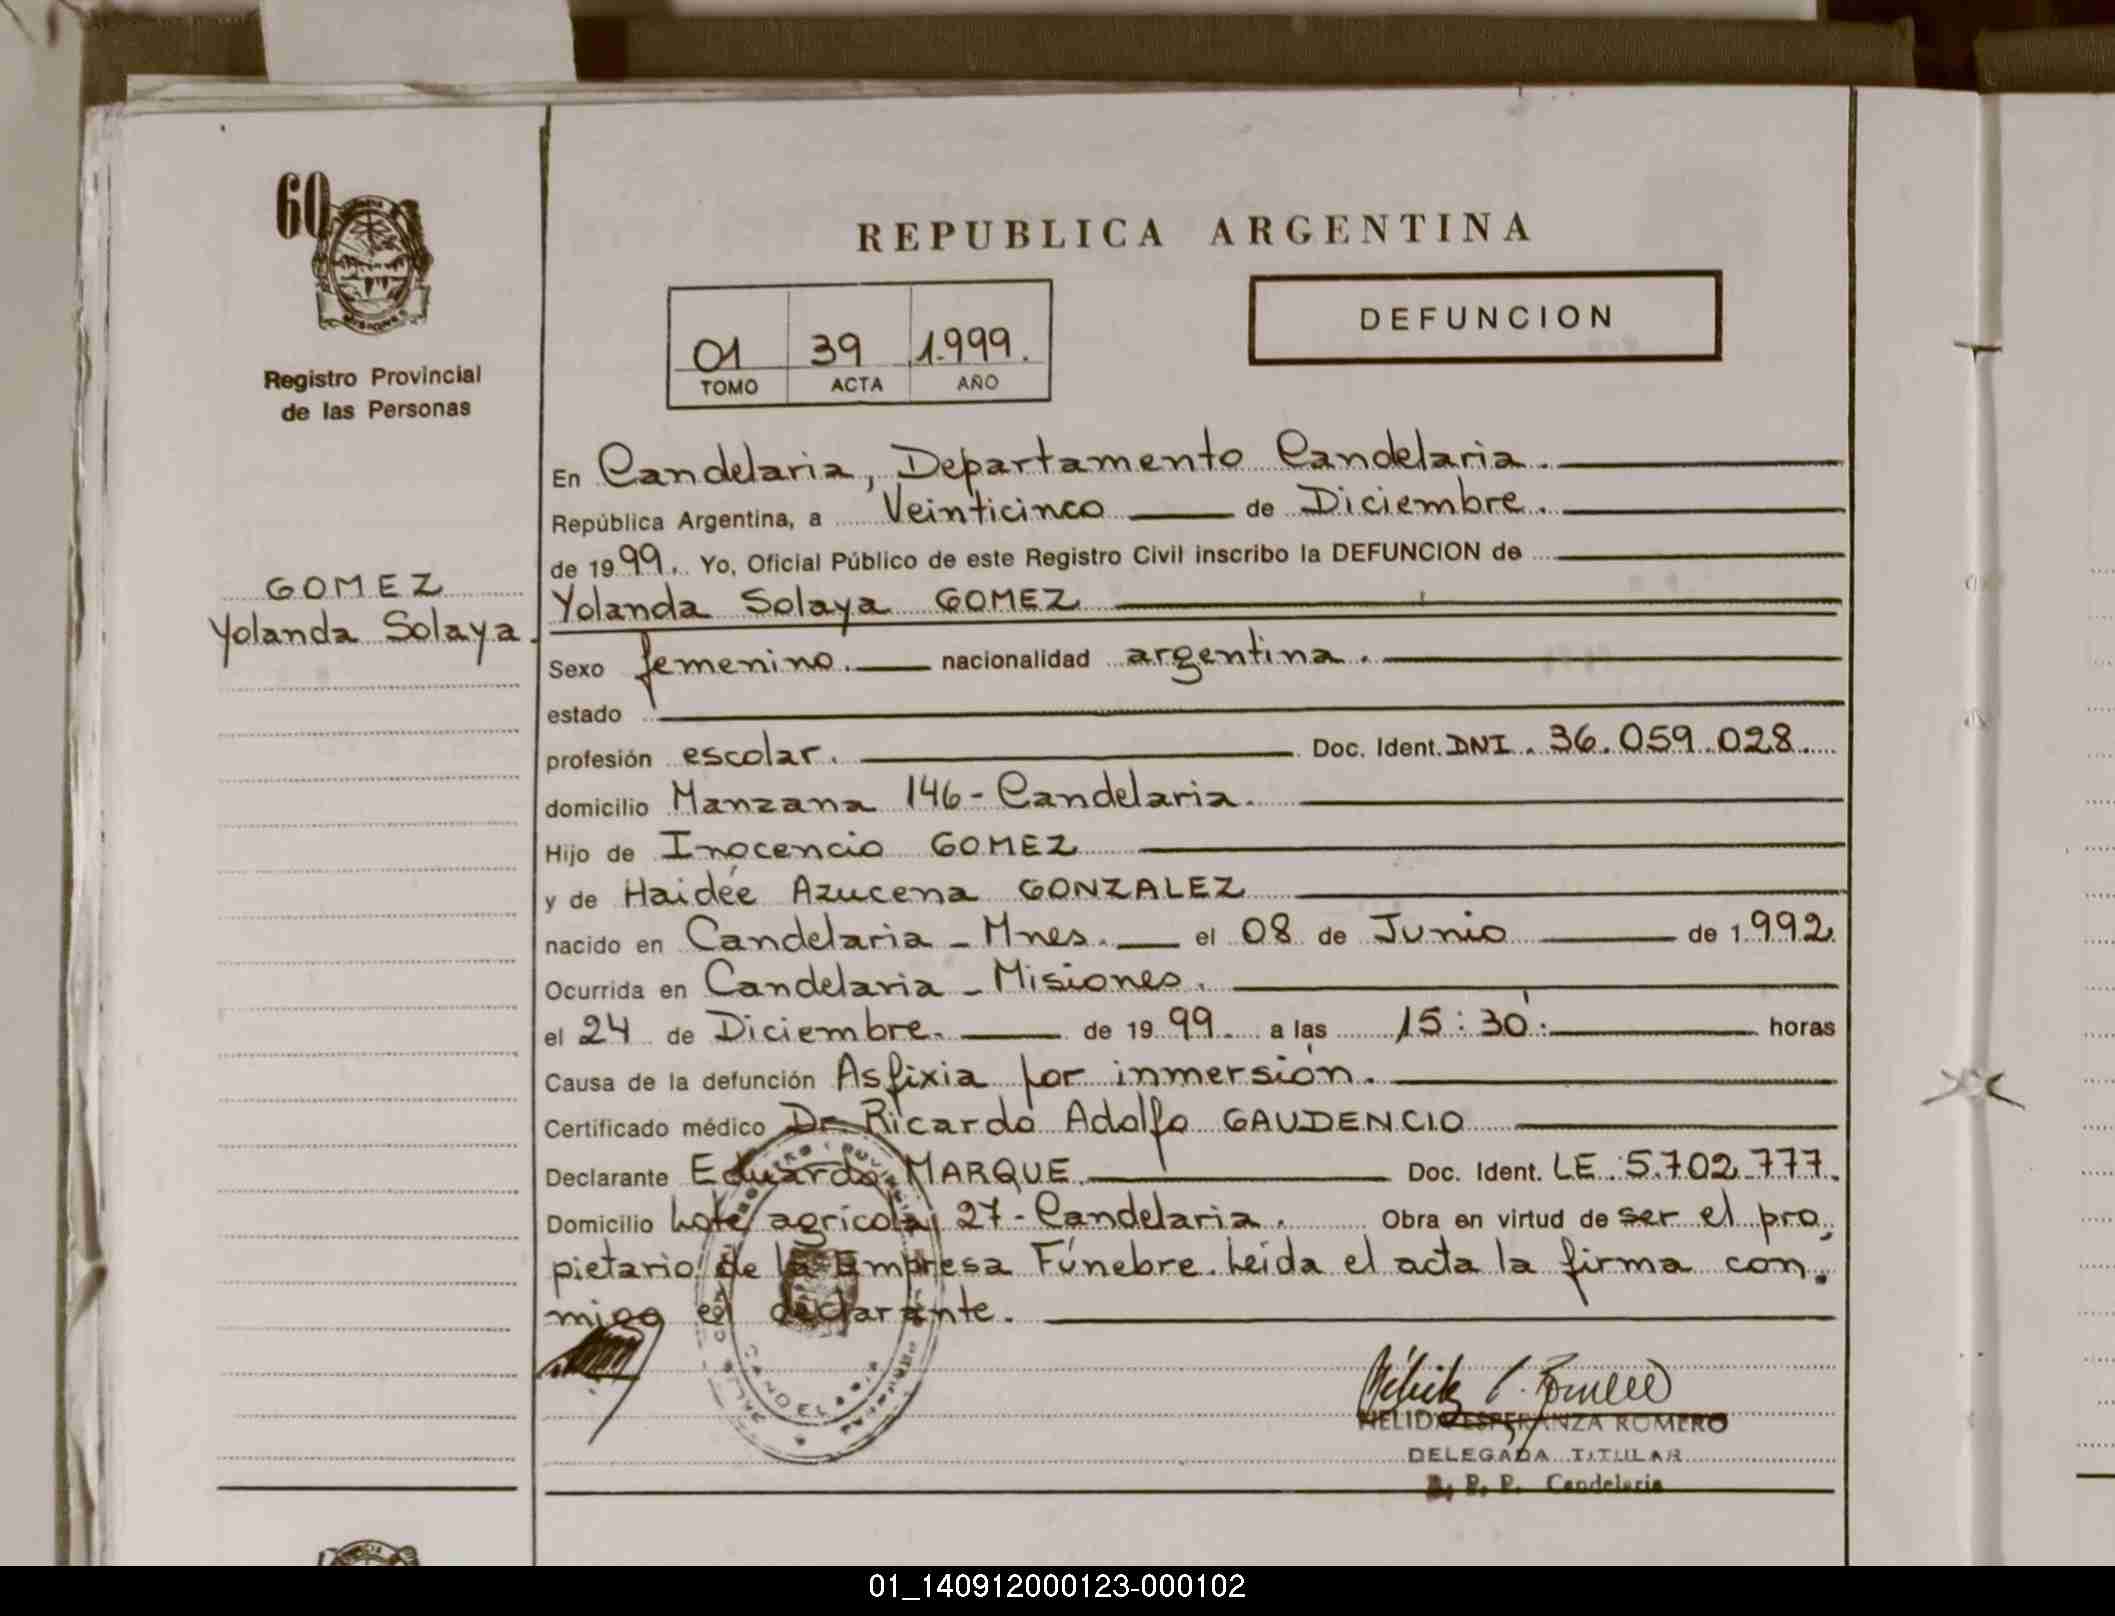 60
Registro Provincial
de las Personas
GOMEZ
Yolanda Solaya.
REPUBLICA ARGENTINA
01 39 1.999.
TOMO ACTA AÑO
DEFUNCION
En Candelaria, Departamento Candelaria.
República Argentina, a Veinticinco de Diciembre.
de 1999. Yo, Oficial Público de este Registro Civil inscribo la DEFUNCION de
Yolanda Solaya GOMEZ
Sexo femenino. nacionalidad argentina.
estado
profesión escolar. Doc. Ident. DNI. 36.059.028.
domicilio Manzana 146- Candelaria.
Hijo de Inocencio GOMEZ
y de Haidée Azucena GONZALEZ
nacido en Candelaria - Mnes. el 08 de Junio de 1.992
Ocurrida en Candelaria - Misiones.
el 24 de Diciembre. de 1999. a las 15:30'. horas
Causa de la defunción Asfixia por inmersión.
Certificado médico Dr. Ricardo Adolfo GAUDENCIO
Declarante Eduardo MARQUE. Doc. Ident. LE 5.702.777.
Domicilio Lote agrícola 27- Candelaria. Obra en virtud de ser el pro,
pietario de la Empresa Fúnebre. Leída el acta la firma con.
migo el declarante.
HELIDA ESPERANZA ROMERO
DELEGADA TITULAR
R. P. P. Candelaria
01_140912000123-000102